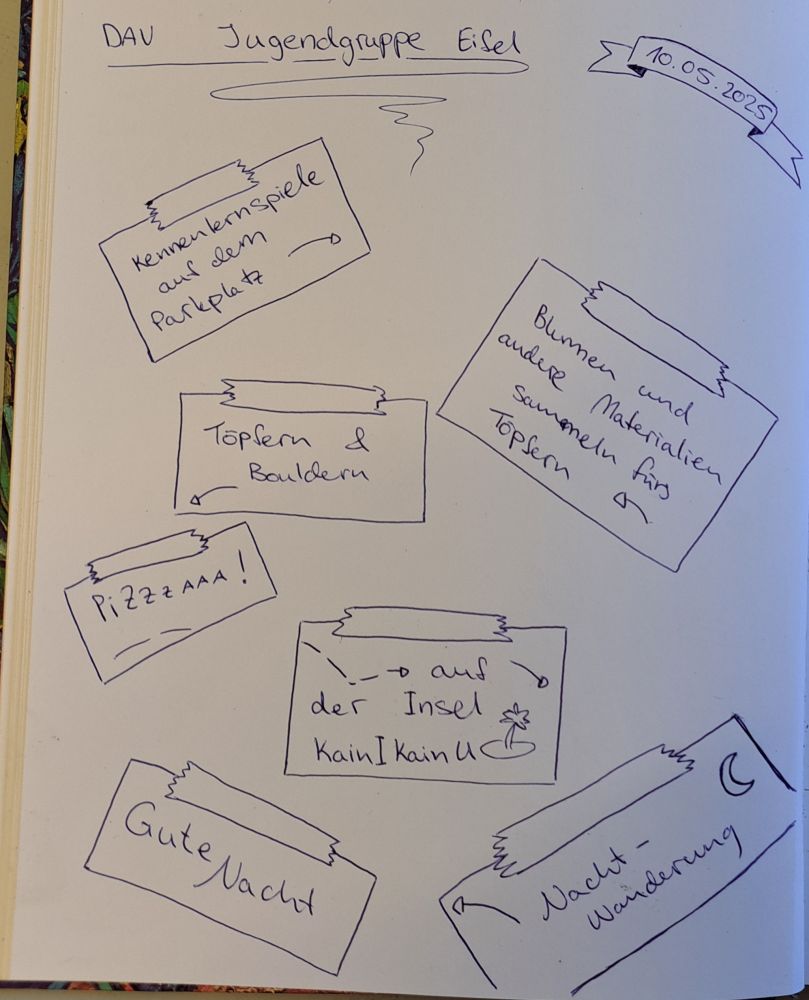 DAV Jugendgruppe Eifel
10.05.2025
Kennenlernspiele
auf dem
Parkplatz
Blumen und
andere Materialien
sammeln fürs
Töpfern
Töpfern &
Bouldern
PiZZZAAA!
auf
der Insel
KainIKainU
Nacht-
Wanderung
Gute
Nacht